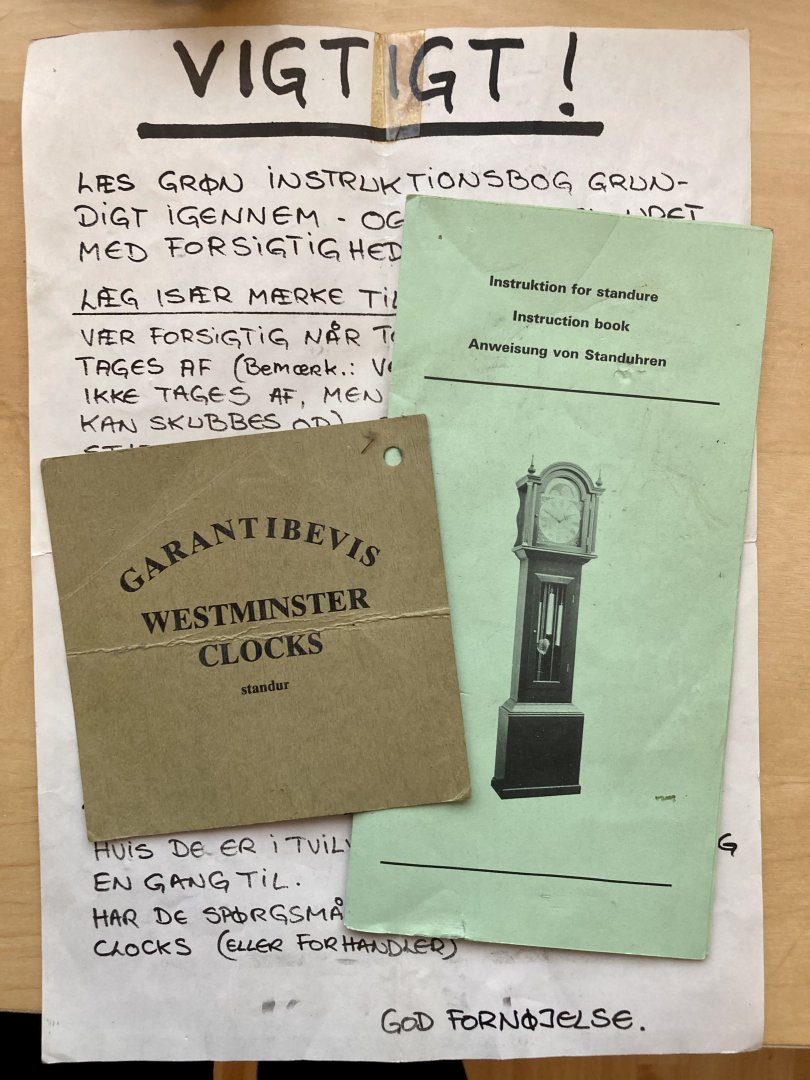 VIGTIGT!
LÆS GRØN INSTRUKTIONSBOG GRUN-
DIGT IGENNEM - OG
MED FORSIGTIGHED
LÆG ISÆR MÆRKE TIL
VÆR FORSIGTIG NÅR
TAGES AF (BEMÆRK.:
IKKE TAGES AF, MEN
KAN SKUBBES OP)
HVIS DE ER I TVIVL
EN GANG TIL.
HAR DE SPØRGSMÅ
CLOCKS (ELLER FORHANDLER)
GOD FORNØJELSE.
Instruktion for standure
Instruction book
Anweisung von Standuhren
GARANTIBEVIS
WESTMINSTER
CLOCKS
standur